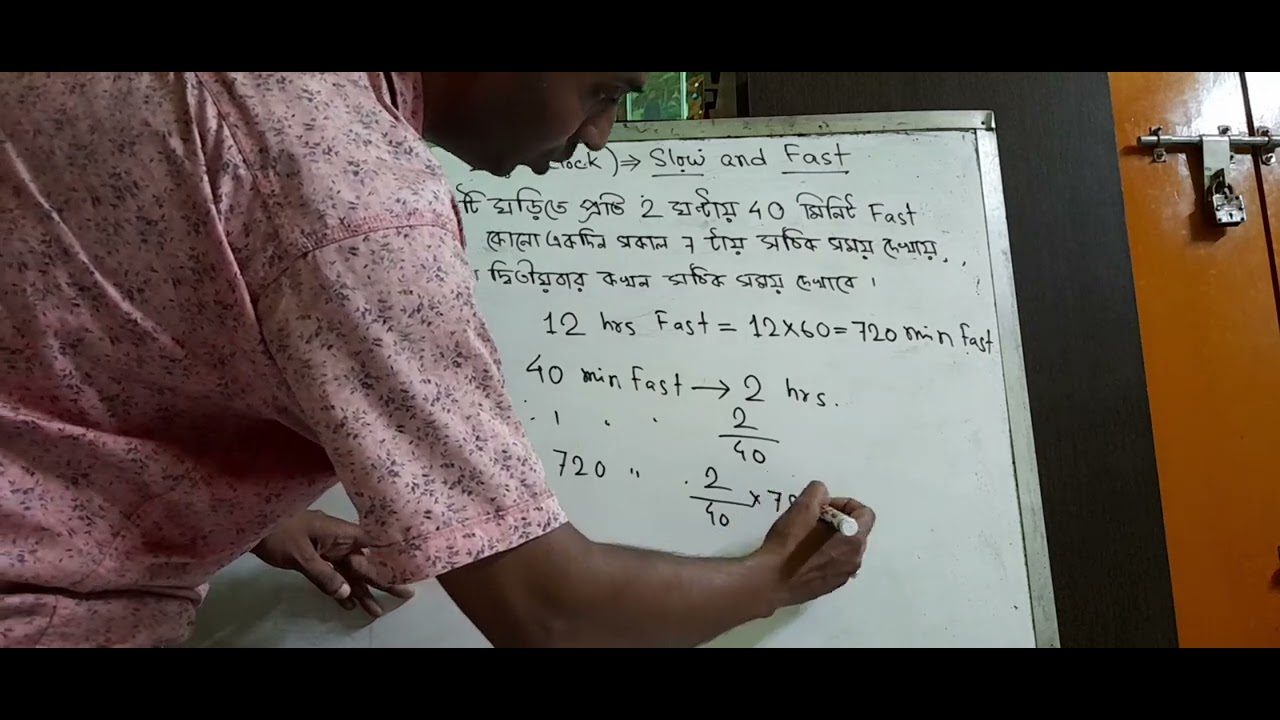 Clock) ⇒ Slow and Fast
টি ঘড়িতে প্রতি 2 ঘন্টায় 40 মিনিট Fast
কোনো একদিন সকাল 7 টায় সঠিক সময় দেখায়
দ্বিতীয়বার কখন সঠিক সময় দেখাবে।
12 hrs Fast = 12×60 = 720 min fast
40 min fast → 2 hrs.
" 1 " " 2/40
720 " " 2/40 × 7